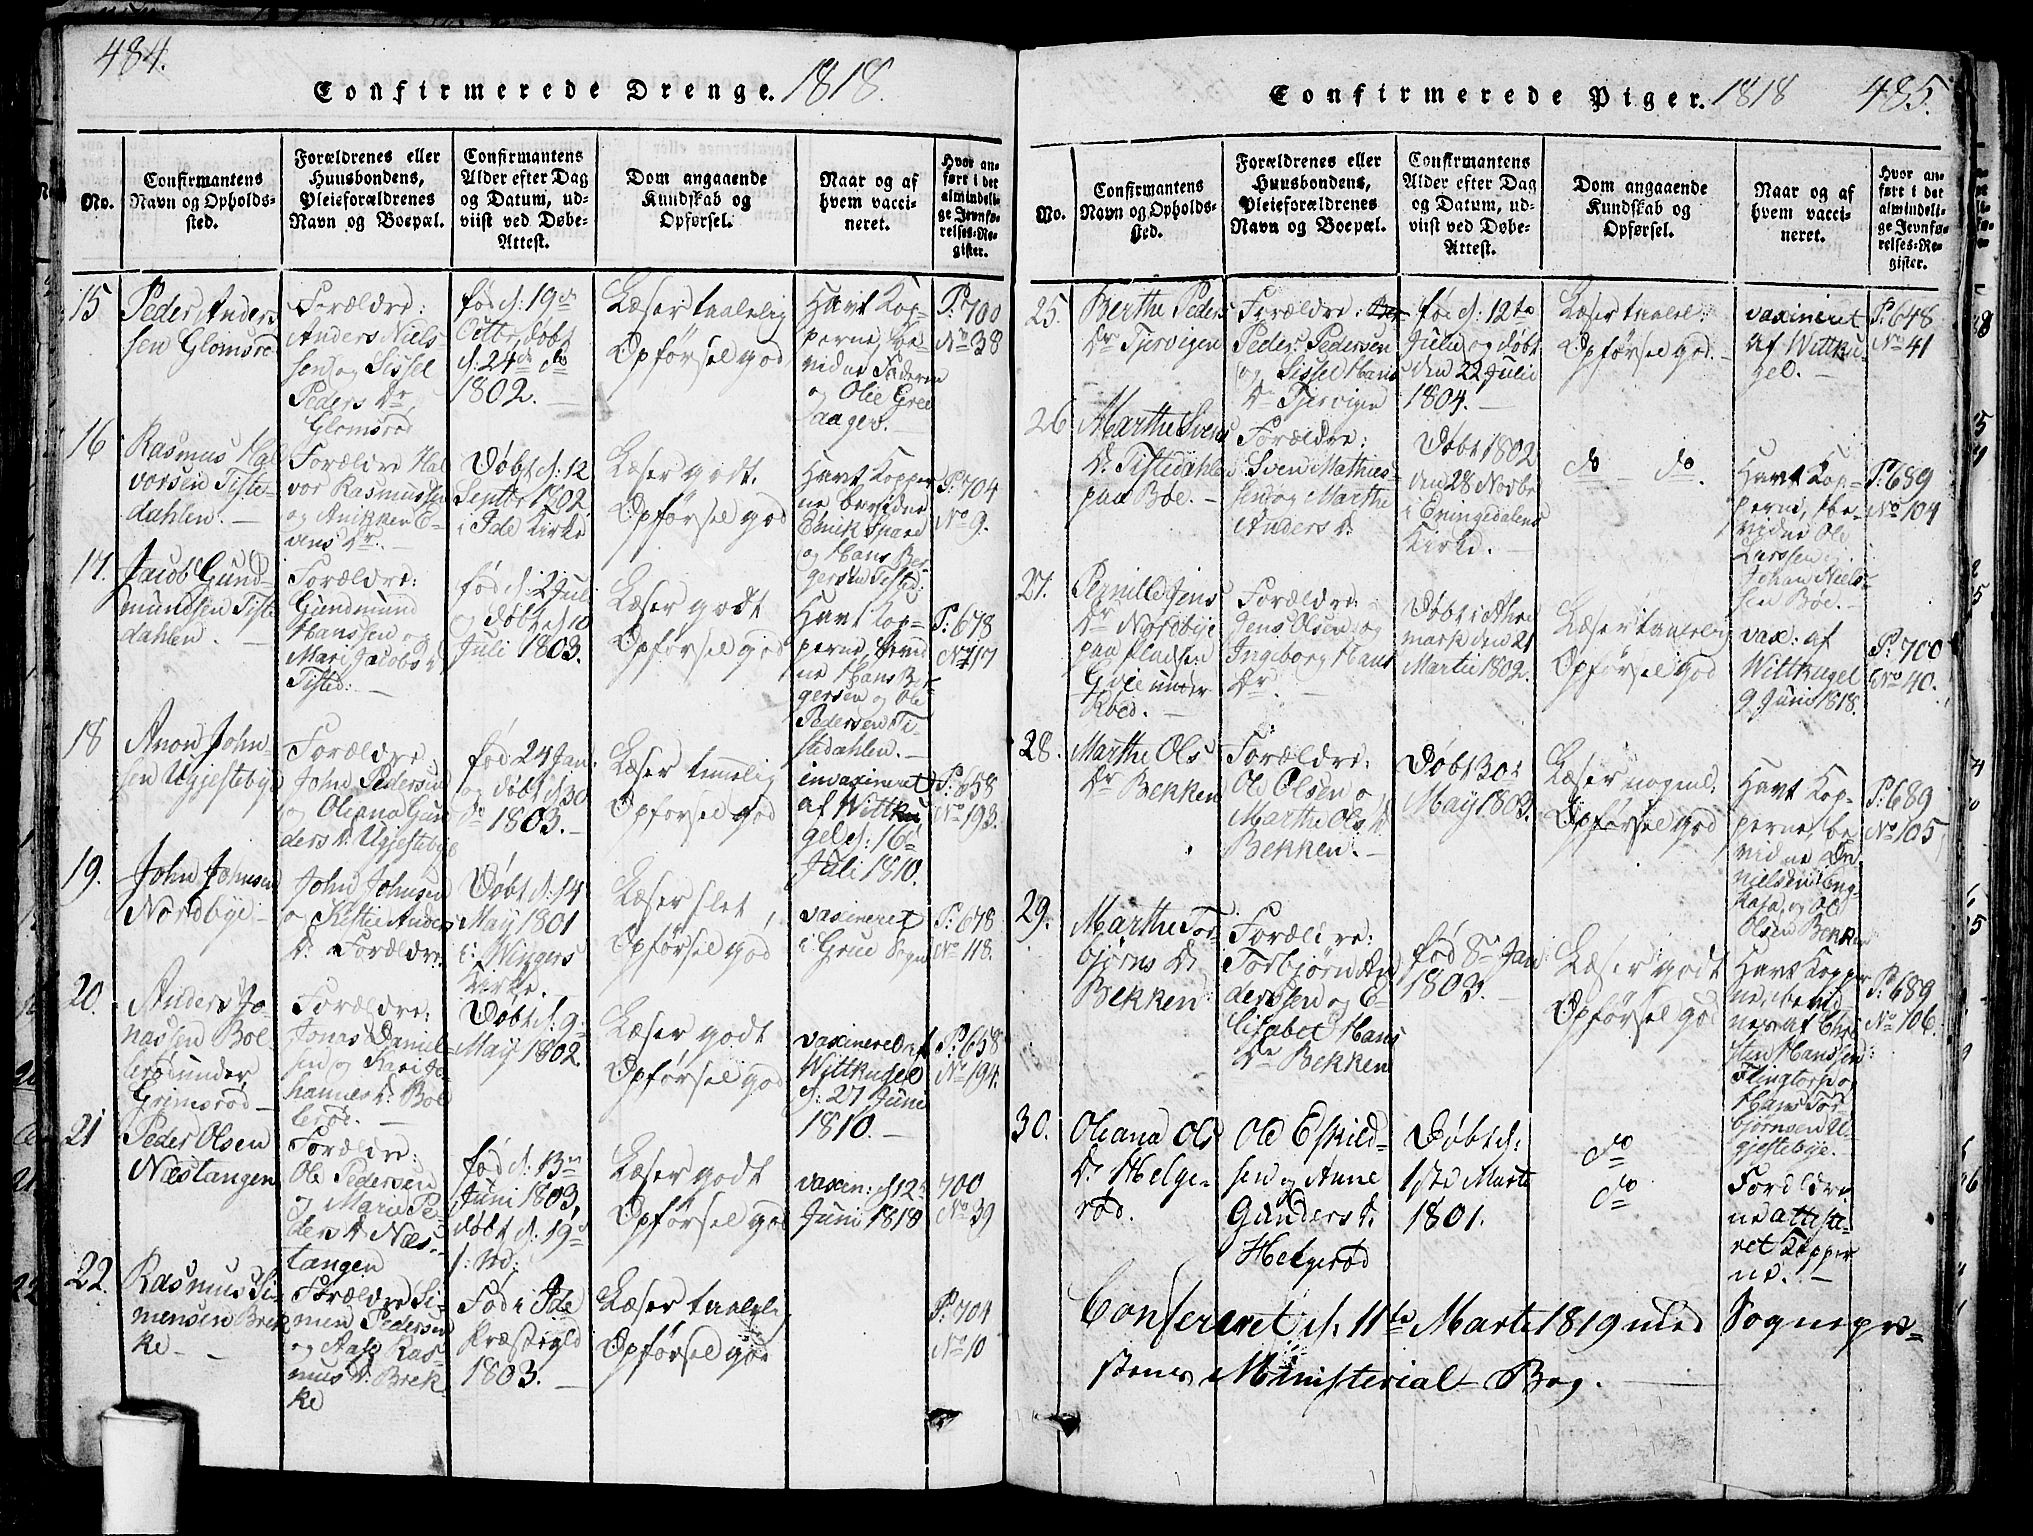 484.
Confirmerede Drenge. 1818.
No.
Confirmantens
Navn og Opholds-
sted.
Forældrenes eller
Huusbondens,
Pleieforældrenes
Navn og Boepæl.
Confirmantens
Alder efter Dag
og Datum, ud-
viist ved Døbe-
Attest.
Dom angaaende
Kundskab og
Opførsel.
Naar og af
hvem vacci-
neret.
Hvor an-
ført i det
almindeli-
ge Jevnfø-
relses-Re-
gister.
15
Peder Anders
sen Glomsrød
Forældre:
Anders Niels
sen og Sissel
Peders Dr.
Glomsrød
fød d: 19de
Octbr, døbt
d: 24de do
1802.
Læser taalelig
Opførsel god
Havt Kop-
perne, be-
vidne Faderen
og Olle Gree
aager.
P: 700
No 38
16
Rasmus Hal
vorsen Tiste-
dahlen.
Forældre Hal
vor Rasmussen
og Anikken E-
vens Dr.
Døbt d: 12
Septbr 1802
i Ide Kirke
Læser godt.
Opførsel god
Havt Kopper
ne bevidne
og Hans Bør
gersen Tisted:
P: 704
No 9.
17.
Jacob Gund-
mundsen Tiste
dahlen.
Forældre:
Gundmund
Hanssen og
Mari Jacobs D.
Tisted:
fød d: 2 Juli
og døbt d 10
Juli 1803.
Læser godt
Opførsel god
Havt Kop-
perne, bevid
ne Hans Bør-
gersen og Ole
Pedersen Ti-
stedahlen.
P: 678
No 117
18
Anon John
sen Ugjestebye
Forældre:
John Pedersen
og Oleana Gun
ders D. Ugjestebye
fød 24 Jan:
og døbt d 30
do 1803.
Læser temmelig
Opførsel god
invaxineret
af Wittku
gel d: 16de
Juli 1810.
P: 658
No 193.
19.
John Johnsen
Nordbye
John Johnsen
o Kistie Anders
D. Forældre.
Døbt d. 14
May 1801
i Wingers
Kirke.
Læser slet,
Opførsel god
vaxineret
i Grue Sogn
P: 678
No 118.
20.
Anders Jo-
nassen Bol
lerød under
Grimsrød
Forældre:
Jonas Daniel
sen og Kari Jo-
hannes D. Bol
lerød.
Døbt d. 9de
May 1802
Læser godt
Opførsel god
vaxineret af
Wittkugel
d: 27 Juni
1810.
P: 658
No 194.
21
Peder Olsen
Næstangen
Forældre:
Ole Pedersen
og Marie Pe-
ders D. Næs-
tangen
fød d: 13de
Juni 1803,
døbt d. 19de
s: M:
Læser godt
Opførsel god
vaxin: d 12te
Juni 1818
700
No 39
22.
Rasmus Si-
mensen Brek
ke
Forældre Si-
men Pedersen
og Aase Ras-
mus D. Brek
ke
Fød i Ide
Præstegield
1803.
Læser taalelig
Opførsel god
P: 704
No 10
Confirmerede Piger. 1818
485.
No.
Confirmantens
Navn og Opholds-
sted.
Forældrenes eller
Huusbondens,
Pleieforældrenes
Navn og Boepæl.
Confirmantens
Alder efter Dag
og Datum, ud-
viist ved Døbe-
Attest.
Dom angaaende
Kundskab og
Opførsel.
Naar og af
hvem vacci-
neret.
Hvor an-
ført i det
almindeli-
ge Jevnfø-
relses-Re-
gister.
25.
Berthe Peders
Dr Tjervigen
Forældre:
Peder Pedersen
og Sissel Hans
Dr Tjervigen
fød d: 12te
Julii og døbt
den 22 Julii
1804.
Læser taalel:
Opførsel god.
vaxineret
af Wittku-
gel.
P: 648
No 41
26
Marthe Svens
D. Tistedahlen
paa Bøe.
Forældre:
Sven Mathies
sen og Marthe
Anders D.
Døbt 1802
den 28 Novbr
i Eningedalens
Kirke.
do do.
Havt Kop-
perne, be-
vidne Ole
Larssen og
Johan Niels-
sen Bøe.
P: 689
No 104
27.
Pernille Jens
Dr Nordbye
paa Pladsen
under
Roed.
Forældre:
Jens Olsen og
Ingeborg Hans
Dr.
Døbt i Are
mark den 21
Martii 1802.
Læser taalelig
Opførsel god
vax: af
Wittkugel
9 Juni 1818.
P: 700
No 40.
28.
Marthe Ols
Dr Bekken
Forældre:
Ole Olsen og
Marthe Ols D.
Bekken.
Døbt 30te
May 1803.
Læser nogenl:
Opførsel god
Havt Kop-
perne, be
vidne
Nielsen Eng
og Ole
Olsen Bekken
P: 689
No 105
29.
Marthe Tor-
bjørns D.
Bekken
Forældre:
Torbjørn An
derssen og E-
lisabet Hans
Dr Bekken
fød 8de Jan
1803.
Læser godt
Opførsel god
Havt Kopper
ne, bevid
nes af Chri
sten Hanssen
Flingtorp og
Hans Tor-
bjørnsen U-
gjestebye.
P: 689
No 106.
30.
Oleana Ols
D. Helge-
rød.
Ole Eskild-
sen og Anne
Gunders D.
Helgerød
Døbt d:
1ste Marti
1801.
do
do
Forældre
ne atteste-
ret Kopper
ne.
Confereret d. 11te Marti 1819 med Sognepræ-
stens Ministerial Bog.